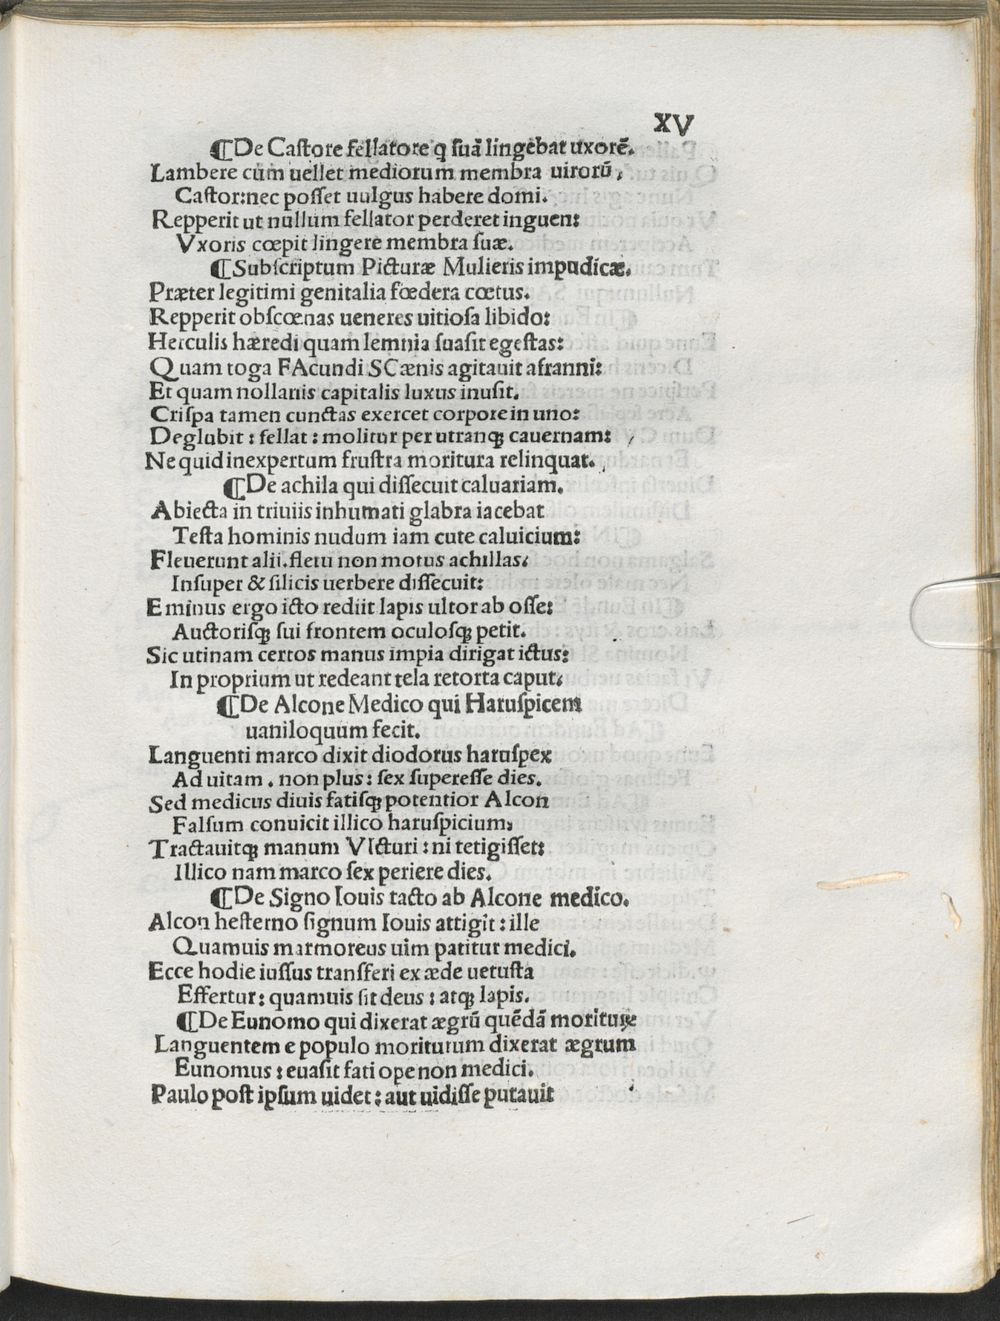 XV
¶De Castore fellatore q suã lingebat uxorẽ.
Lambere cum uellet mediorum membra uirorũ,
Castor:nec posset uulgus habere domi.
Repperit ut nullum fellator perderet inguen:
Vxoris cœpit lingere membra suæ.
¶Subscriptum Picturæ Mulieris impudicæ.
Præter legitimi genitalia fœdera cœtus.
Repperit obscœnas ueneres uitiosa libido:
Herculis hæredi quam lemnia suasit egestas:
Quam toga FAcundi SCænis agitauit afranni:
Et quam nollanis capitalis luxus inusit.
Crispa tamen cunctas exercet corpore in uno:
Deglubit : fellat : molitur per utranqꝫ cauernam:
Ne quid inexpertum frustra moritura relinquat.
¶De achila qui dissecuit caluariam.
Abiecta in triuiis inhumati glabra iacebat
Testa hominis nudum iam cute caluicium:
Fleuerunt alii.fletu non motus achillas:
Insuper & silicis uerbere dissecuit:
Eminus ergo icto rediit lapis ultor ab osse:
Auctorisqꝫ sui frontem oculosqꝫ petit.
Sic utinam certos manus impia dirigat ictus:
In proprium ut redeant tela retorta caput:
¶De Alcone Medico qui Haruspicem
uaniloquum fecit.
Languenti marco dixit diodorus haruspex
Ad uitam . non plus : sex superesse dies.
Sed medicus diuis fatisqꝫ potentior Alcon
Falsum conuicit illico haruspicium,
Tractauitqꝫ manum VIcturi : ni tetigisset:
Illico nam marco sex periere dies.
¶De Signo Iouis tacto ab Alcone medico.
Alcon hesterno signum Iouis attigit : ille
Quamuis marmoreus uim patitur medici.
Ecce hodie iussus transferi ex æde uetusta
Effertur: quamuis sit deus : atqꝫ lapis.
¶De Eunomo qui dixerat ægrũ quẽdã moriturũ
Languentem e populo moriturum dixerat ægrum
Eunomus : euasit fati ope non medici.
Paulo post ipsum uidet : aut uidisse putauit